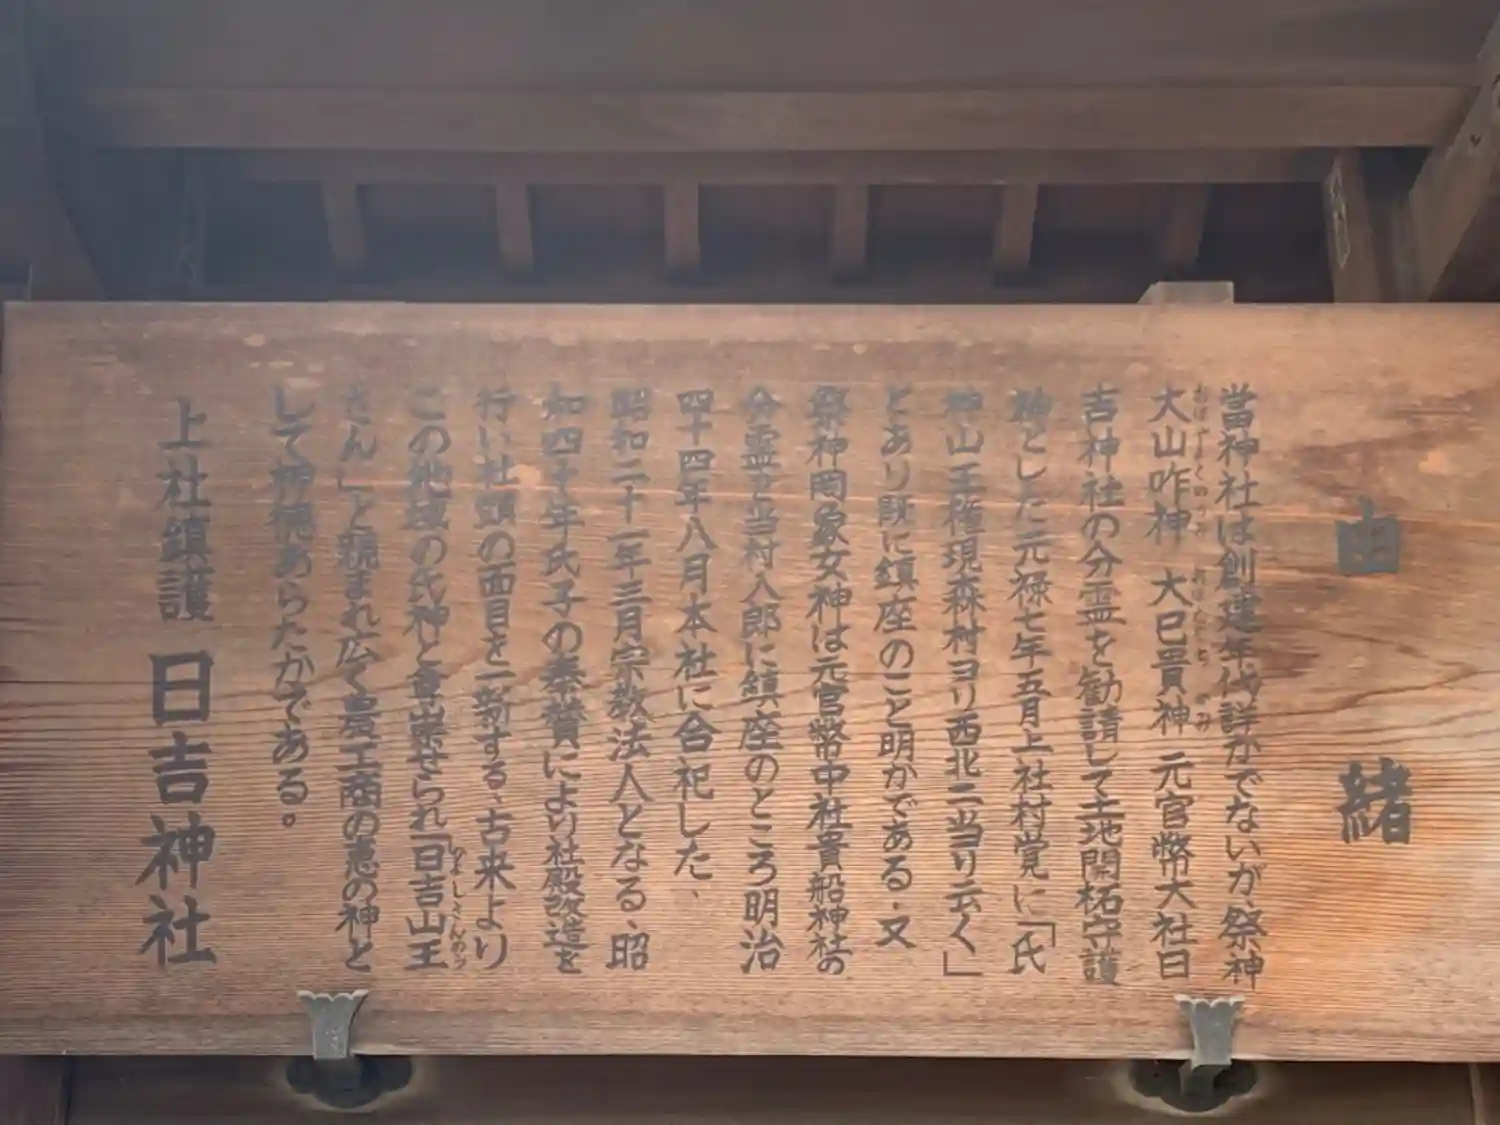 由緒
當神社は創建年代詳かでないが、祭神
大山咋神 大巳貴神 元官幣大社日
吉神社の分霊を勧請して土地開柘守護
神とした元禄七年五月上社村覚に「氏
神山王権現森村ヨリ西北ニ当リ云く」
とあり既に鎮座のこと明かである.又
祭神罔象女神は元官幣中社貴船神社の
分霊で当村八郎に鎮座のところ明治
四十四年八月本社に合祀した、
昭和二十一年三月宗教法人となる、昭
和四十年氏子の奉賛により社殿改造を
行い社頭の面目を一新する、古来より
この地域の氏神と尊崇せられ「日吉山王
さん」と親まれ広く農工商の恵の神と
して神徳あらたかである。
上社鎮護 日吉神社